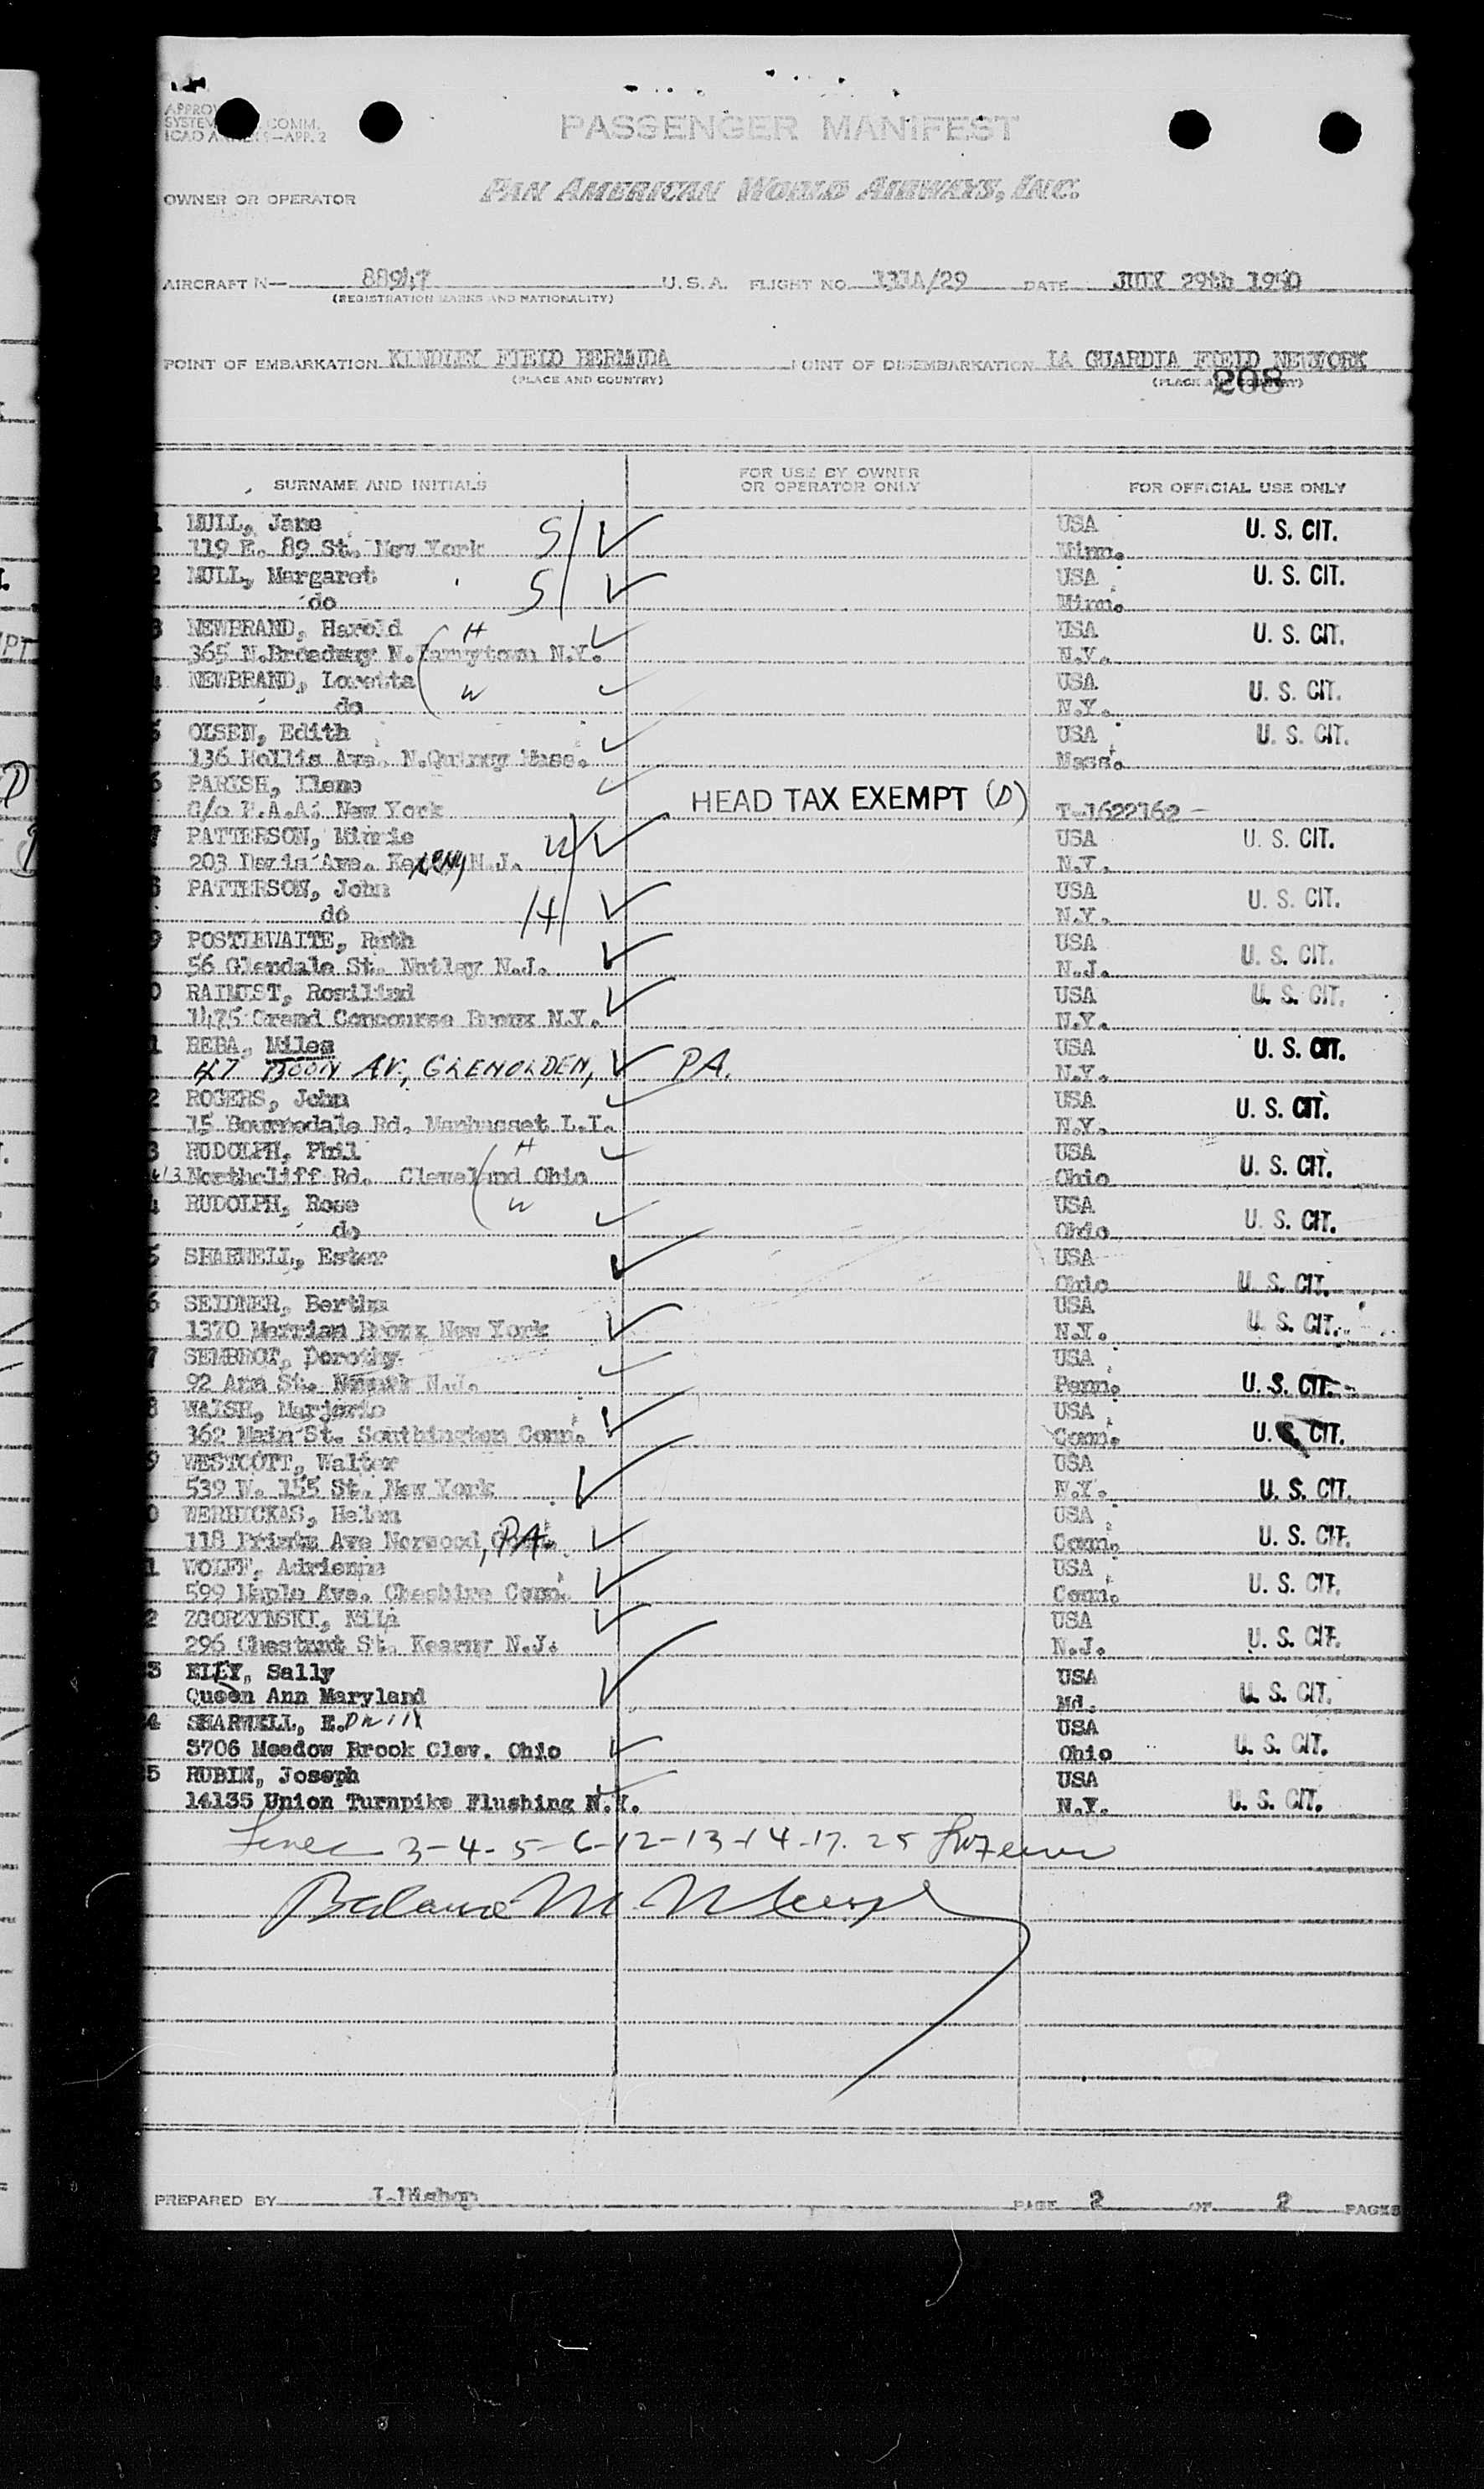 PASSENGER MANIFEST
OWNER OR OPERATOR PAN AMERICAN WORLD AIRWAYS, INC.
AIRCRAFT N— 88947 U.S.A. FLIGHT NO. 131A/29 DATE JULY 29th 1950
(REGISTRATION MARKS AND NATIONALITY)
POINT OF EMBARKATION KINDLEY FIELD BERMUDA POINT OF DISEMBARKATION LA GUARDIA FIELD NEWYORK
(PLACE AND COUNTRY) 208
SURNAME AND INITIALS FOR USE BY OWNER OR OPERATOR ONLY FOR OFFICIAL USE ONLY
1 MULL, Jane S USA U. S. CIT.
119 E. 89 St. New York Minn.
2 MULL, Margaret S USA U. S. CIT.
do Minn.
3 NEWBRAND, Harold H USA U. S. CIT.
365 N.Broadway N.Tarrytown N.Y. N.Y.
4 NEWBRAND, Loretta W USA U. S. CIT.
do N.Y.
5 OLSEN, Edith USA U. S. CIT.
136 Hollis Ave. N.Quincy Mass. Mass.
6 PARISH, Ilene HEAD TAX EXEMPT (D)
C/o P.A.A. New York T-1622162 —
7 PATTERSON, Minnie W USA U. S. CIT.
203 Davis Ave. Kearny N.J. N.Y.
8 PATTERSON, John H USA U. S. CIT.
do N.Y.
9 POSTLEWAITE, Ruth USA U. S. CIT.
56 Glendale St. Nutley N.J. N.J.
0 RAIMIST, Rosilind USA U. S. CIT.
1475 Grand Concourse Bronx N.Y. N.Y.
1 REBA, Miles USA U. S. CIT.
47 BOON AV., GLENOLDEN, PA. N.Y.
2 ROGERS, John USA U. S. CIT.
15 Bournedale Rd. Manhasset L.I. N.Y.
3 RUDOLPH, Phil H USA U. S. CIT.
Northcliff Rd. Cleveland Ohio Ohio
4 RUDOLPH, Rose W USA U. S. CIT.
do Ohio
5 SHARWELL, Ester USA
Ohio U. S. CIT.
6 SEIDNER, Bertha USA U. S. CIT.
1370 Merriam Bronx New York N.Y.
7 SEMBROT, Dorothy USA
92 Ann St. Newark N.J. Penn. U. S. CIT.
8 WALSH, Marjorie USA
362 Main St. Southington Conn. Conn. U. S. CIT.
9 WESTCOTT, Walter USA
539 W. 155 St. New York N.Y. U. S. CIT.
0 WERHICKAS, Helen USA
118 Printz Ave Norwood, PA. Conn. U. S. CIT.
1 WOLFF, Adrienne USA U. S. CIT.
599 Maple Ave. Cheshire Conn. Conn.
2 ZGORZYNSKI, USA U. S. CIT.
296 Chestnut St. Kearny N.J. N.J.
3 ELEY, Sally USA U. S. CIT.
Queen Ann Maryland Md.
4 SHARWELL, E. USA U. S. CIT.
3706 Meadow Brook Clev. Ohio Ohio
5 RUBIN, Joseph USA
14135 Union Turnpike Flushing N.Y. N.Y. U. S. CIT.
3-4-5-6-12-13-14-17. 25
Balance
PREPARED BY PAGE 2 OF 2 PAGES